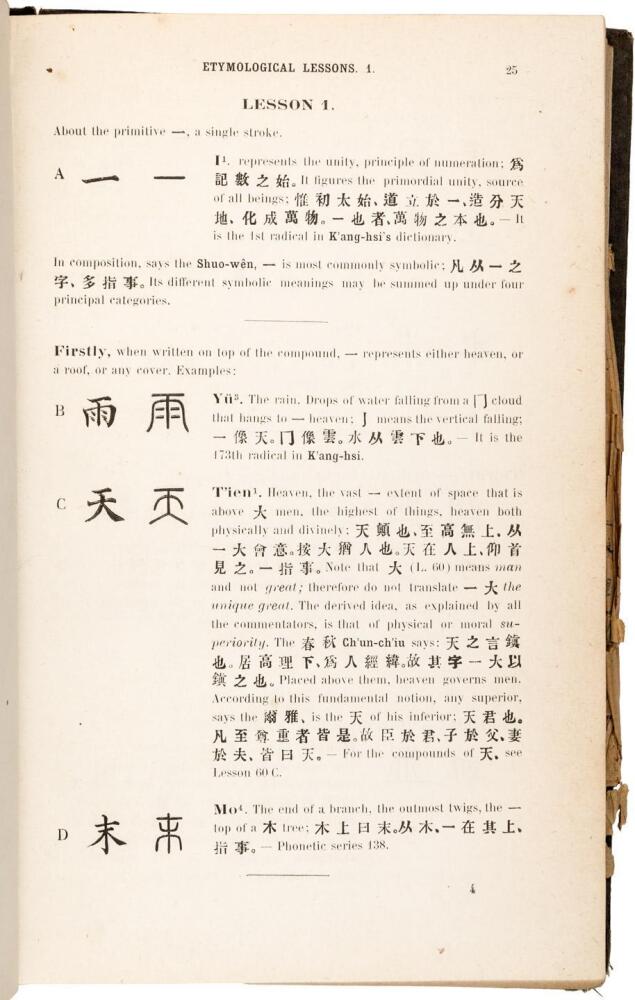 ETYMOLOGICAL LESSONS. 1. 25
LESSON 1.
About the primitive 一, a single stroke.
A 一 一 I¹. represents the unity, principle of numeration; 爲
記數之始。It figures the primordial unity, source
of all beings; 惟初太始、道立於一、造分天
地、化成萬物。一也者、萬物之本也。— It
is the 1st radical in K'ang-hsi's dictionary.
In composition, says the Shuo-wên, 一 is most commonly symbolic; 凡从一之
字、多指事。Its different symbolic meanings may be summed up under four
principal categories.
Firstly, when written on top of the compound, 一 represents either heaven, or
a roof, or any cover. Examples:
B 雨 雨 Yü³. The rain. Drops of water falling from a 冂 cloud
that hangs to 一 heaven; 亅 means the vertical falling;
一像天。冂像雲。水从雲下也。— It is the
173th radical in K'ang-hsi.
C 天 天 T'ien¹. Heaven, the vast 一 extent of space that is
above 大 men, the highest of things, heaven both
physically and divinely; 天顚也、至高無上。从
一大會意。按大猶人也。天在人上、仰首
見之。一指事。Note that 大 (L. 60) means man
and not great; therefore do not translate 一大 the
unique great. The derived idea, as explained by all
the commentators, is that of physical or moral su-
periority. The 春秋 Ch'un-ch'iu says: 天之言鎭
也。居高理下、爲人經緯。故其字一大以
鎭之也。Placed above them, heaven governs men.
According to this fundamental notion, any superior,
says the 爾雅、is the 天 of his inferior; 天君也。
凡至尊重者皆是。故臣於君、子於父、妻
於夫、皆曰天。— For the compounds of 天、see
Lesson 60 C.
D 末 末 Mo⁴. The end of a branch, the outmost twigs, the 一
top of a 木 tree; 木上曰末。从木、一在其上、
指事。— Phonetic series 138.
4